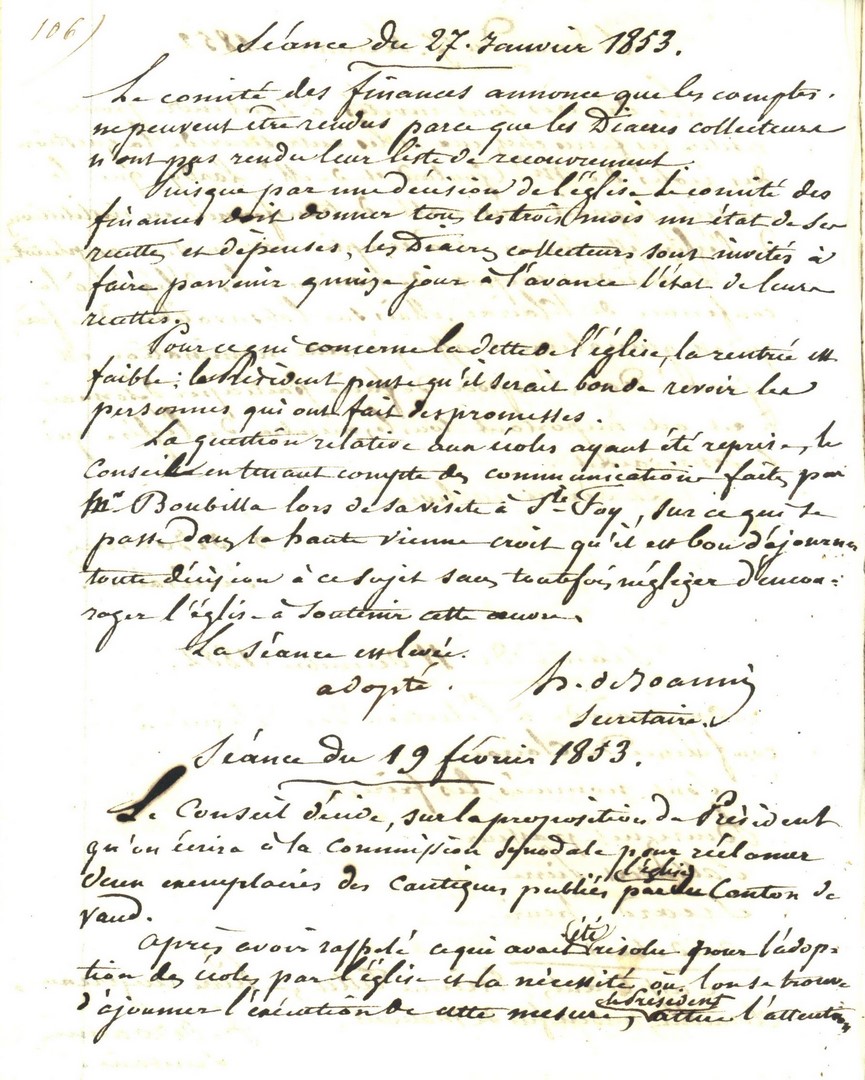 106)
Séance du 27. Janvier 1853.
Le comité des finances annonce que les comptes
ne peuvent être rendus parce que les Diacres collecteurs
n'ont pas rendu leur liste de recouvrement.
Puisque par une décision de l'église le comité des
finances doit donner tous les trois mois un état de ses
recettes et dépenses, les Diacres collecteurs sont invités à
faire parvenir quinze jour à l'avance l'état de leurs
recettes.
Pour ce qui concerne la dette de l'église, la rentrée est
faible; le Président pense qu'il serait bon de revoir les
personnes qui ont fait des promesses.
La question relative aux écoles ayant été reprise, le
Conseil en tenant compte des communications faites par
Mr. Boubilla lors de sa visite à Ste Foy, sur ce qui se
passe dans la haute vienne croit qu'il est bon d'ajourner
toute décision à ce sujet sans toutefois négliger d'encou-
rager l'église à soutenir cette œuvre.
La Séance est levée.
adopté. h. de Joannis
Secrétaire.
Séance du 19 février 1853.
Le Conseil décide, sur la proposition du Président
qu'on écrira à la Commission synodale pour réclamer
deux exemplaires des Cantiques publiés par l'église du Canton de
Vaud.
Après avoir rappelé ce qui avait été résolu pour l'adop-
tion des écoles par l'église et la nécessité où l'on se trouve
d'ajourner l'exécution de cette mesure, le Président attire l'attention